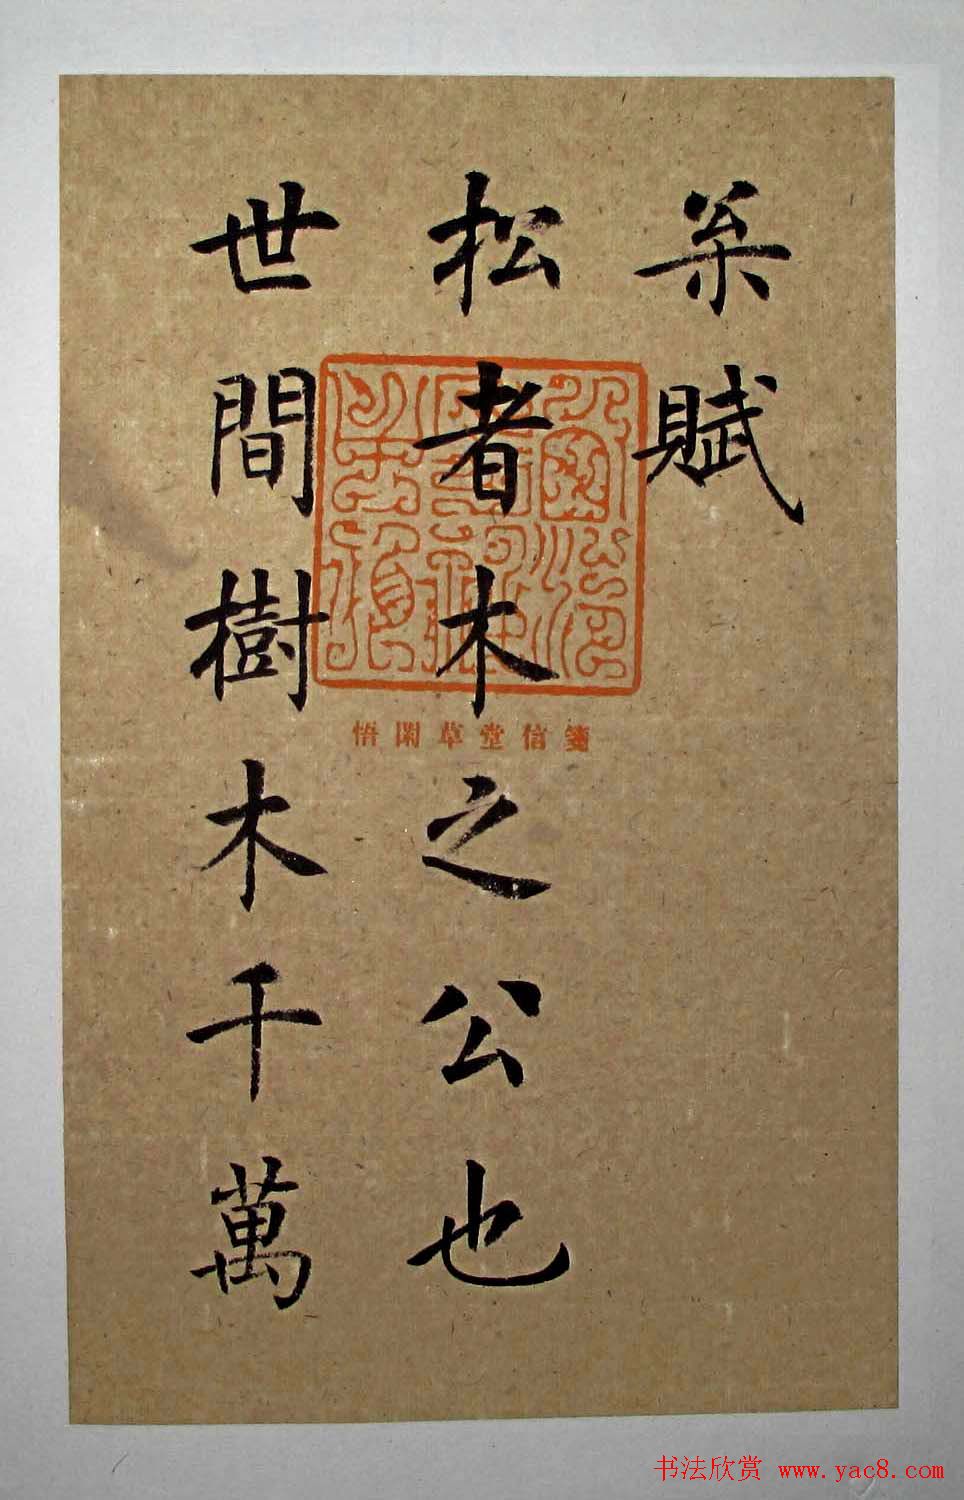 賦
松者木之公也
世間樹木千萬
悟閑草堂信箋
书法欣赏 www.yac8.com